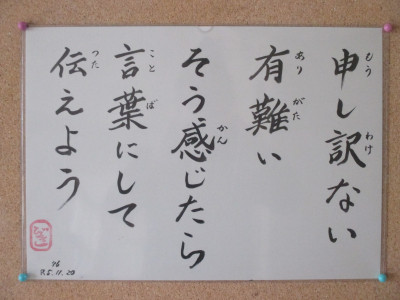 申し訳ない
有難い
そう感じたら
言葉にして
伝えよう
もう
わけ
あり
がた
かん
こと
ば
つた